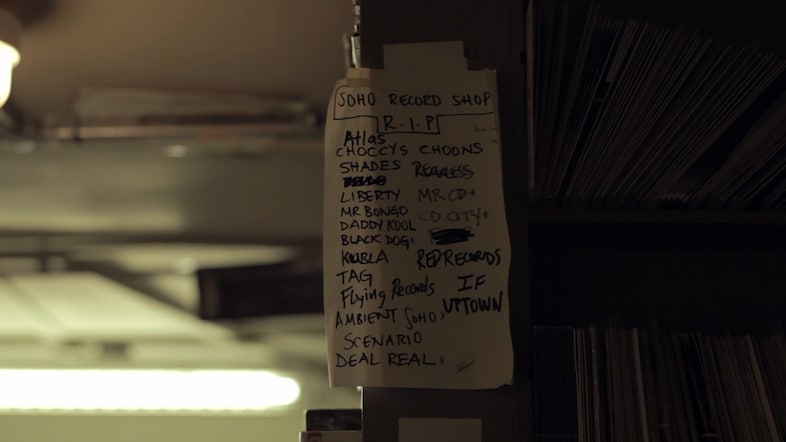 SOHO RECORD SHOP
R.I.P
Atlas
CHOCCYS CHOONS
SHADES RECKLESS
LIBERTY MR CD+
MR BONGO CD CITY+
DADDY KOOL
BLACK DOG
KUBLA RED RECORDS
TAG IF
Flying Records UPTOWN
AMBIENT SOHO
SCENARIO
DEAL REAL